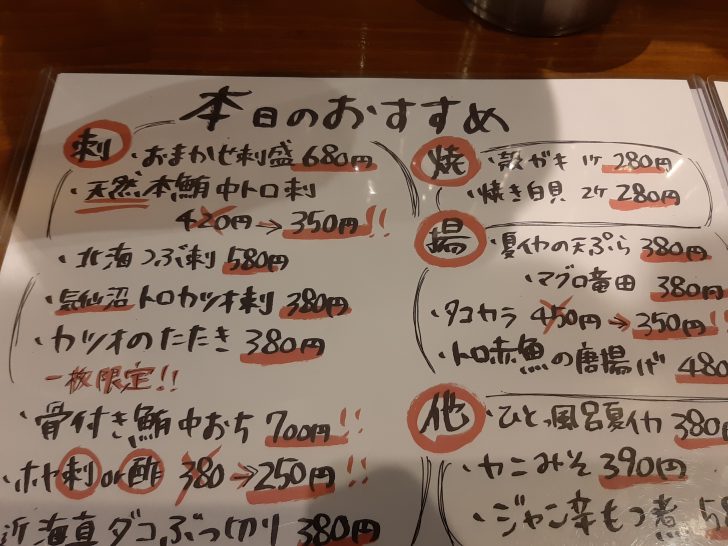 本日のおすすめ
刺
・おまかせ刺盛 680円
・天然本鮪中トロ刺
420円→350円!!
・北海つぶ刺 580円
・気仙沼トロカツオ刺 380円
・カツオのたたき 380円
一枚限定!!
・骨付き鮪中おち 700円!!
・ホヤ刺or酢 380→250円!!
近海真ダコぶっ切り 380円
焼
・殻ガキ 1ケ 280円
・焼き白貝 2ケ 280円
揚
・夏イカの天ぷら 380円
・マグロ竜田 380円
・タコカラ 450円→350円!!
・トロ赤魚の唐揚げ 480
他
・ひとっ風呂夏イカ 380円
・カニみそ 390円
・ジャン辛もつ煮 58